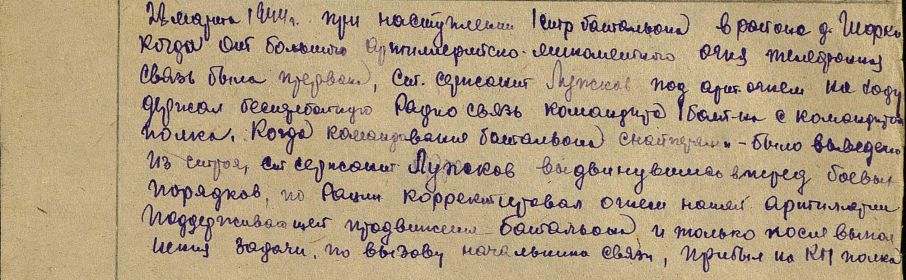 28 марта 1944 г. при наступлении 1 стр батальона в районе д. Шорки
когда от большого артиллерийско-миномётного огня телефонная
связь была прервана, ст. сержант Лужков под арт огнем на ходу
держал бесперебойную Радио связь командира 1 бат-на с командиром
полка. Когда командование батальона снайперами - было выведено
из строя, ст сержант Лужсков выдвинувшись вперед боевых
порядков, по Рации корректировал огнем нашей артиллерии
поддерживающей продвижение батальона и только после выпол
нения задачи, по вызову начальника связи, прибыл на КП полка